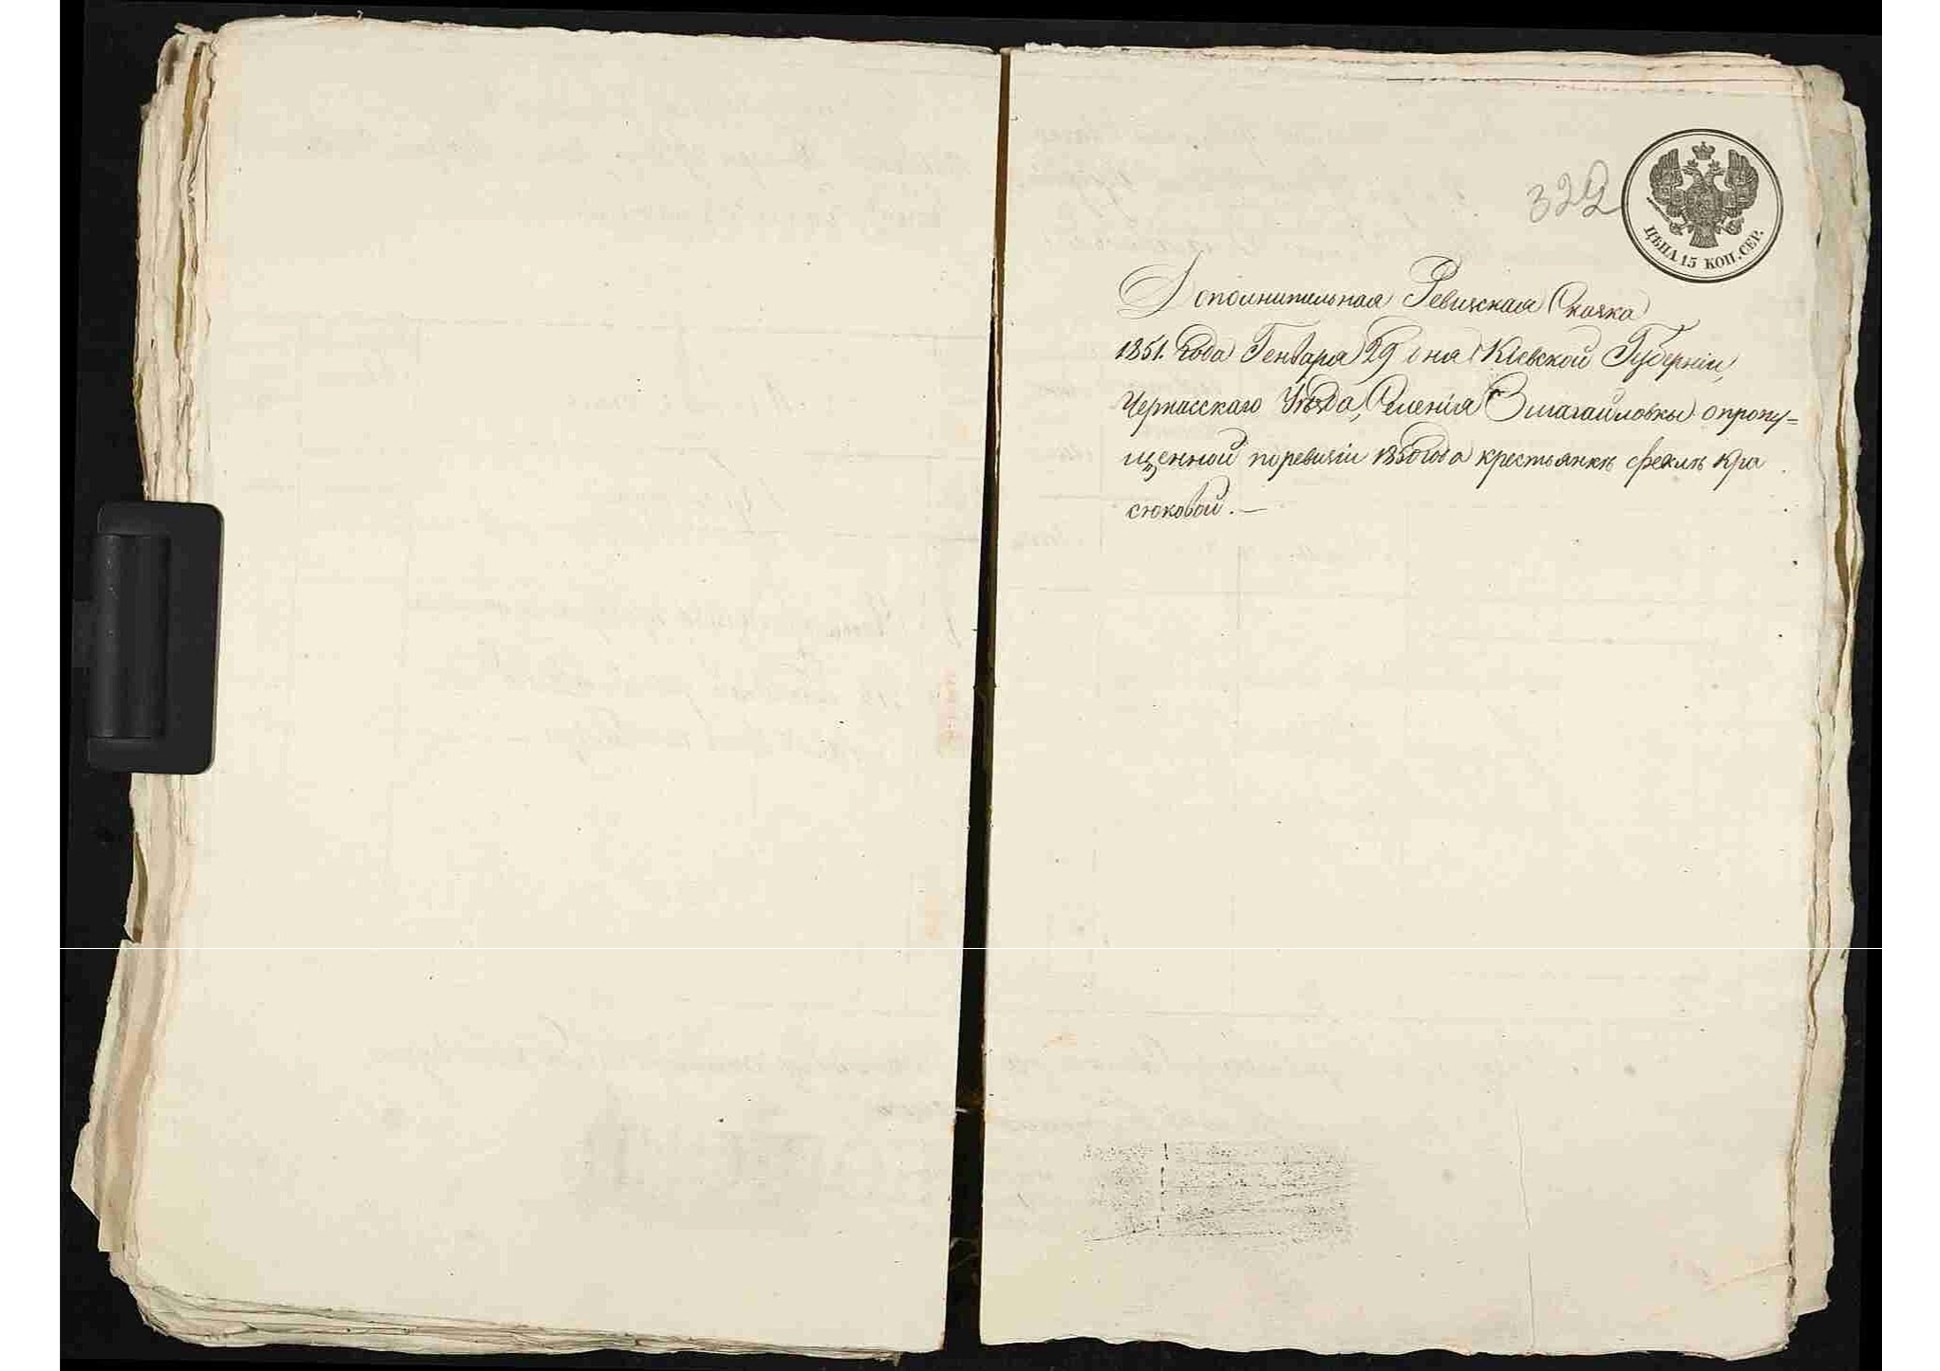 322
ЦѢНА 15 КОП. СЕР.
Дополнительная Ревизская Сказка
1851. Года Генваря 29 дня Кіевской Губерніи,
Черкасскаго Уѣзда, Селенія Змагайловки о пропу=
щенной по ревизіи 1850 года крестьянкѣ Феклѣ Кра
сюковой. —